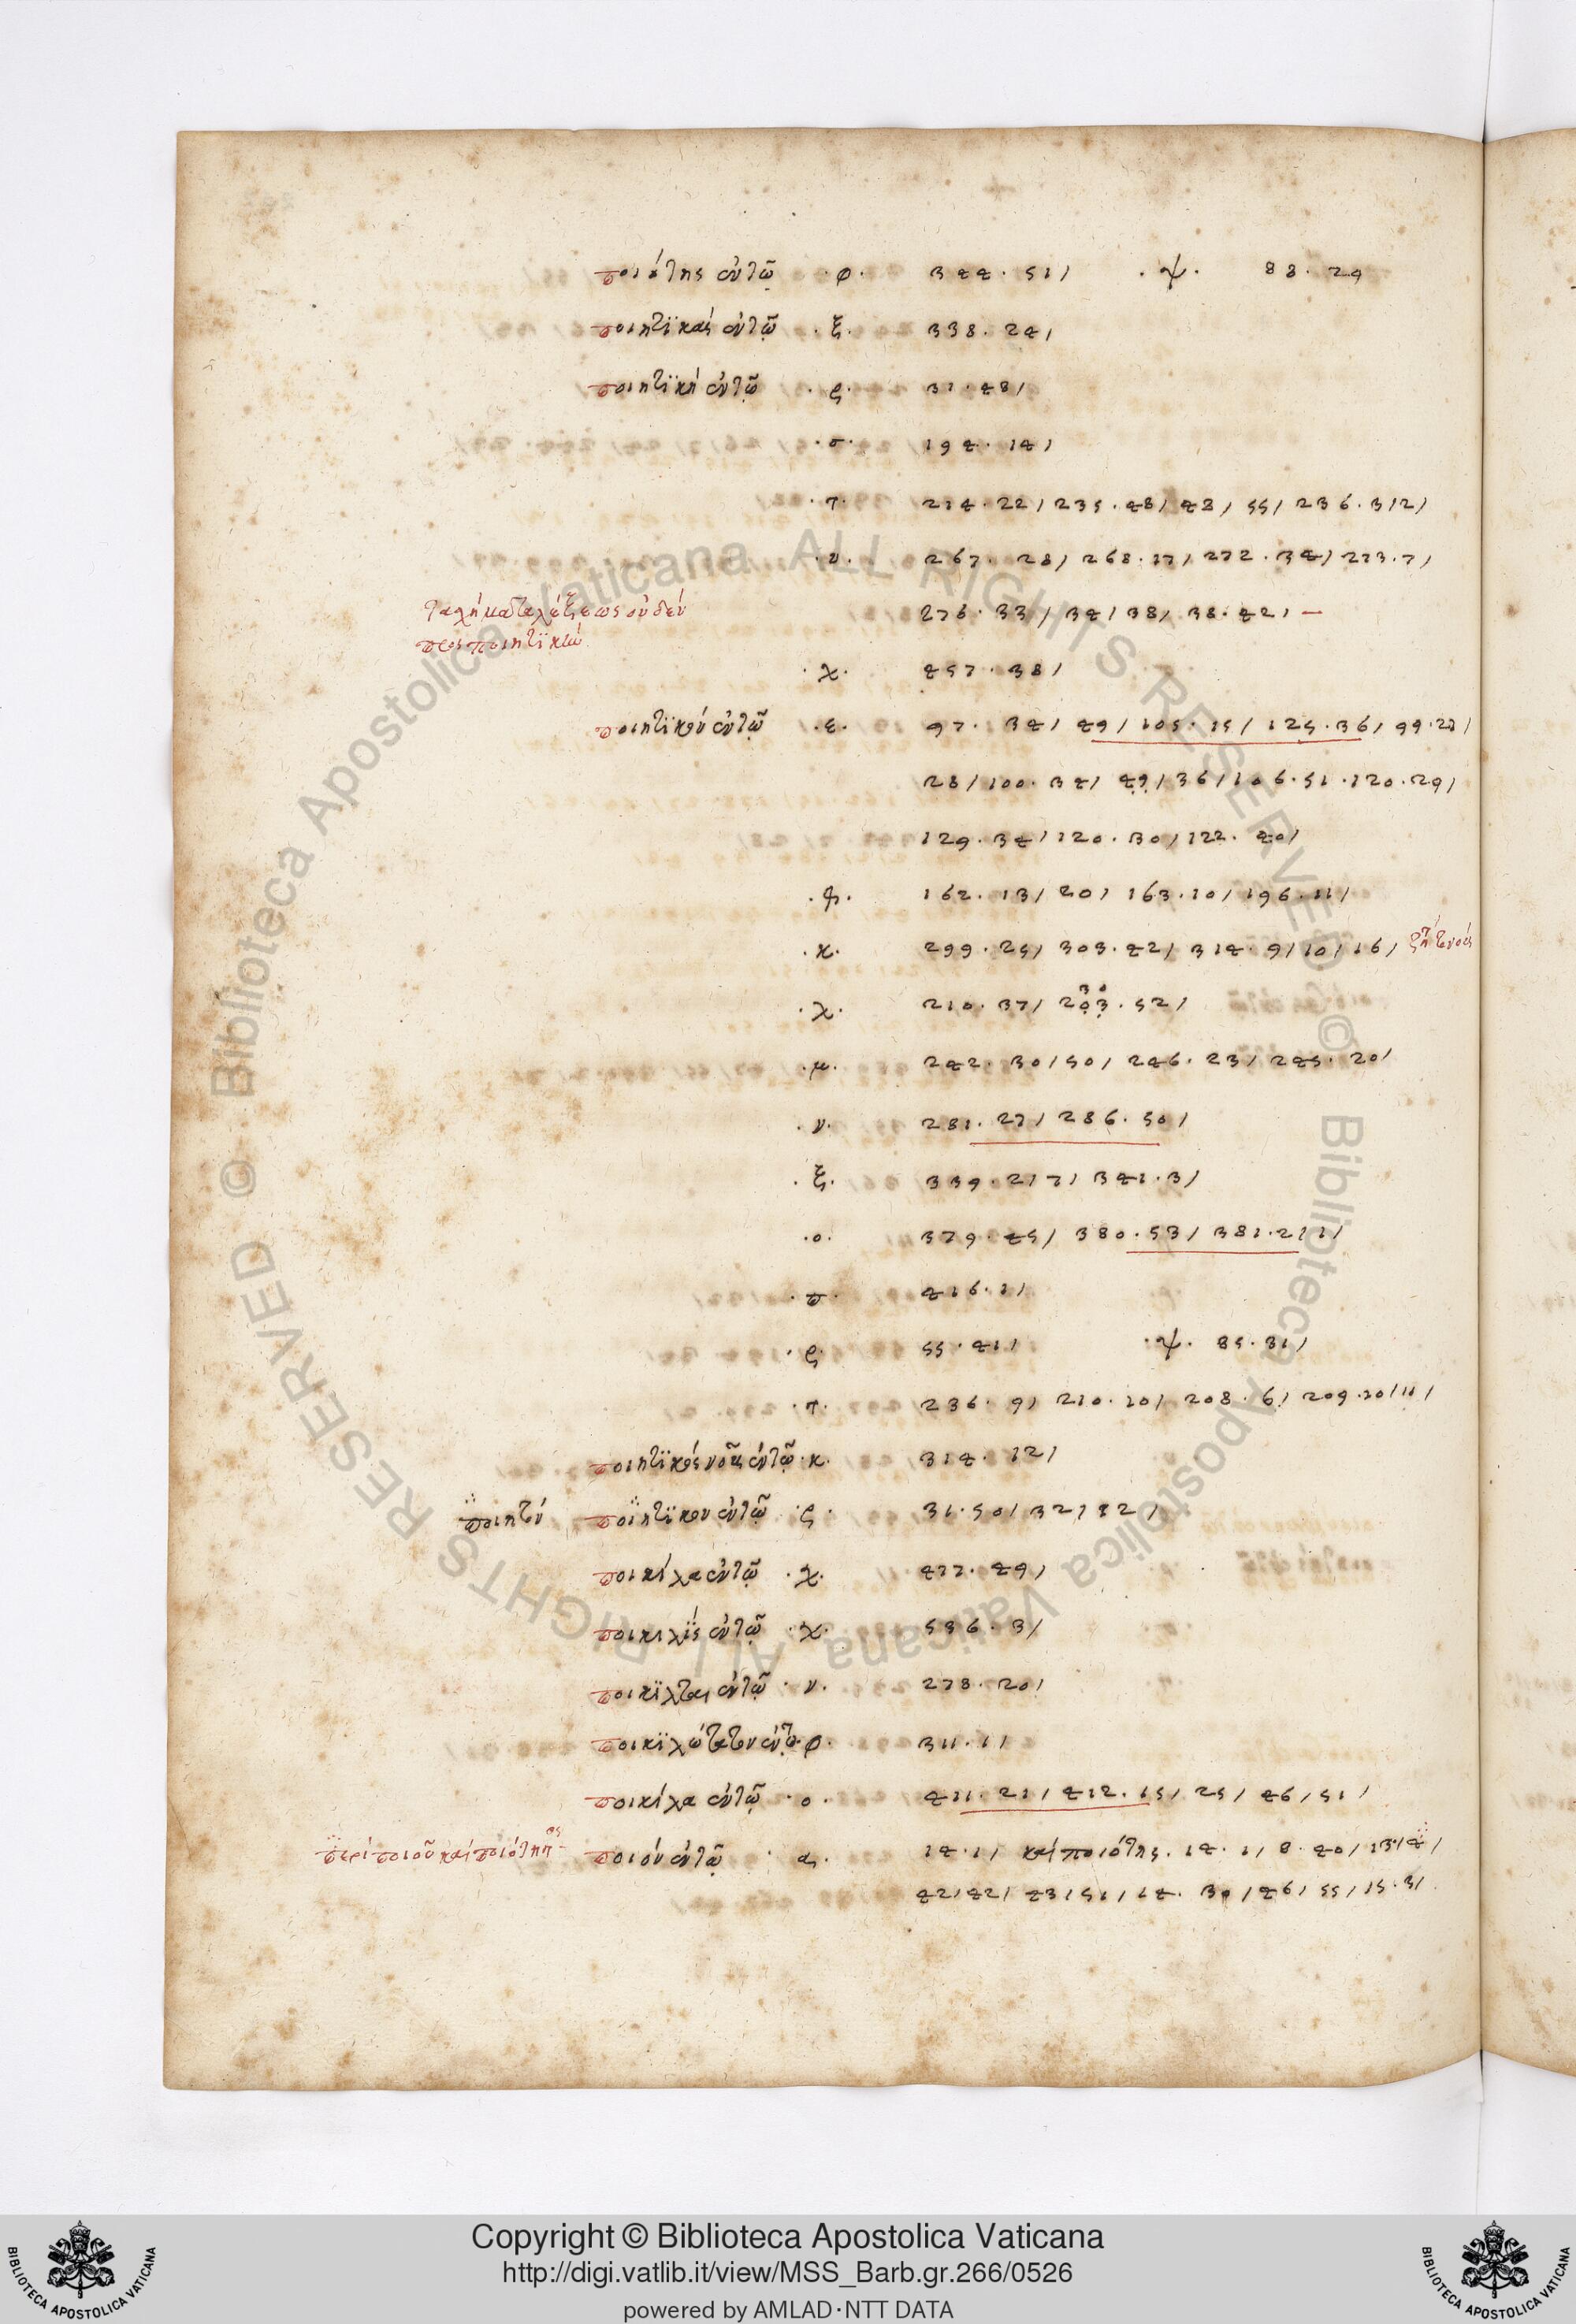 ποιότης ἐν τῷ ·φ· 344 · 51/ ·ψ· 88 · 29
ποιητϊκαὶ ἐν τῷ ·ξ· 338 · 24/
ποιητϊκὴ ἐν τῷ ·ς· 31 · 48/
·σ· 194 · 14/
·τ· 214 · 22/ 235 · 48/ 48/ 55/ 236 · 3/2/
·υ· 267 · 28/ 268 · 17/ 272 · 34/ 273 · 7/
276 · 33/ 34/ 38/ 38 · 42/ –
οὐδὲν
πρὸς ποιητϊκὴν
·χ· 457 · 38/
ποιητϊκὸν ἐν τῷ ·ε· 97 · 34/ 49/ 105 · 15/ 125 · 36/ 99 · 27/
28/ 100 · 34/ 49/ 36/ 106 · 51 · 120 · 29/
129 · 34/ 120 · 30/ 122 · 40/
162 · 13/ 20/ 163 · 10/ 196 · 11/
·κ· 299 · 25/ 303 · 42/ 314 · 9/ 10/ 16/
·λ· 210 · 37/ 203 · 52/
30
·μ· 242 · 30/ 50/ 246 · 23/ 245 · 20/
·ν· 281 · 27/ 286 · 50/
·ξ· 339 · 2/ 7/ 341 · 3/
·ο· 379 · 45/ 380 · 53/ 381 · 2/ 1/
·π· 416 · 1/
·ρ· 55 · 41/ ·ψ· 85 · 31/
·τ· 236 · 9/ 210 · 10/ 208 · 6/ 209 · 10/ 11/
ποιητϊκὸς νοῦς ἐν τῷ ·κ· 314 · 12/
ποιητὸν ποιητϊκον ἐν τῷ ·ς· 31 · 50/ 32/ 12/
ποικίλα ἐν τῷ ·χ· 477 · 49/
ποικιλϊς ἐν τῷ ·χ· 536 · 3/
ποικϊλται ἐν τῷ ·ν· 278 · 20/
ποικϊλώτατον ἐν τῷ ·φ· 311 · 1/
ποικίλα ἐν τῷ ·ο· 411 · 21/ 412 · 15/ 25/ 46/ 51/
περὶ ποιοῦ καὶ ποιότητος – ποιὸν ἐν τῷ ·α· 14 · 1/ καὶ ποιότης · 14 · 1/ 8 · 40/ 13/ 4/
42/ 42/ 43/ 51/ 14 · 30/ 46/ 55/ 15 · 3/
Copyright © Biblioteca Apostolica Vaticana
http://digi.vatlib.it/view/MSS_Barb.gr.266/0526
powered by AMLAD·NTT DATA
BIBLIOTECA APOSTOLICA VATICANA
BIBLIOTECA APOSTOLICA VATICANA
© Biblioteca Apostolica Vaticana ALL RIGHTS RESERVED
© Biblioteca Apostolica Vaticana ALL RIGHTS RESERVED